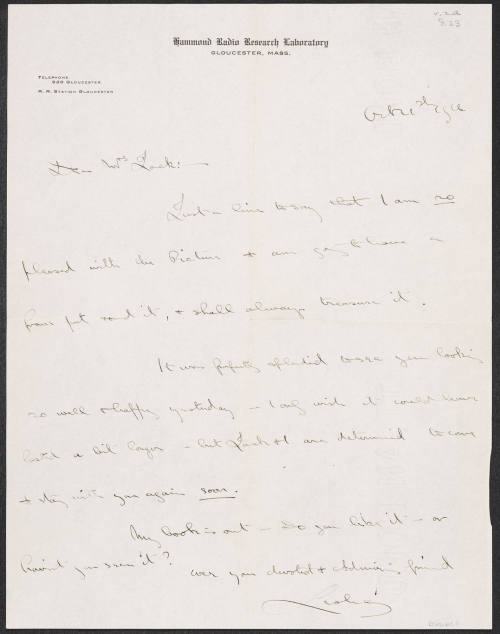 v.2d
8.23
Hammond Radio Research Laboratory
GLOUCESTER, MASS.
TELEPHONE
GLOUCESTER
R. R. STATION GLOUCESTER
Dear Mrs Jack:—
Just a line to say that I am so
pleased with the Picture & am going to have a
frame put round it, & shall always treasure it.
It was perfectly splendid to see you looking
so well & happy yesterday — I only wish it could have
lasted a bit longer — but Jack & I are determined to come
& stay with you again soon.
My book is out — Do you like it — or
haven't you seen it?
ever your devoted & admiring friend
Leslie